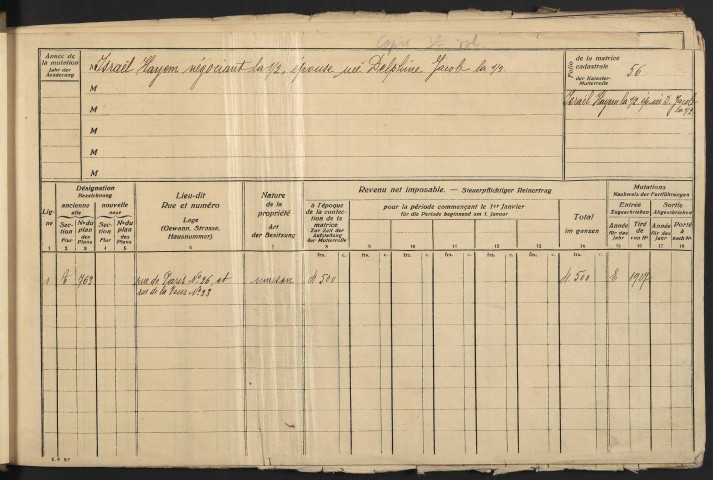 Année de la mutation
Jahr der Aenderung
M Israël Hayem négociant la 1/2, épouse née Delphine Jacob la 1/2
M
M
M
M
Folio
de la matrice cadastrale
der Kataster-Mutterrolle
56
Israël Hayem la 1/2 ép. née D. Jacob
la 1/2
Lig-ne
Désignation
Bezeichnung
ancienne
alte
nouvelle
neue
Section
Flur
No du plan
des Plans
Section
Flur
No du plan
des Plans
Lieu-dit
Rue et numéro
Lage
(Gewann, Strasse, Hausnummer)
Nature de la propriété
Art der Besitzung
Revenu net imposable. — Steuerpflichtiger Reinertrag
à l'époque de la confection de la matrice
Zur Zeit der Aufstellung der Mutterrolle
pour la période commençant le 1er Janvier
für die Periode beginnend am 1. Januar
Total
im ganzen
Mutations
Nachweis der Fortführungen
Entrée
Zugeschrieben
Sortie
Abgeschrieben
Année
für das Jahr
Tiré de
von No
Année
für das Jahr
Porté à
nach No
1 2 3 4 5 6 7 8 9 10 11 12 13 14 15 16 17 18
frs. c. frs. c. frs. c. frs. c. frs. c. frs. c. frs. c. frs. c.
1 769 rue de Paris No 26 et maison 500 500
rue de la No 23
E. P 57